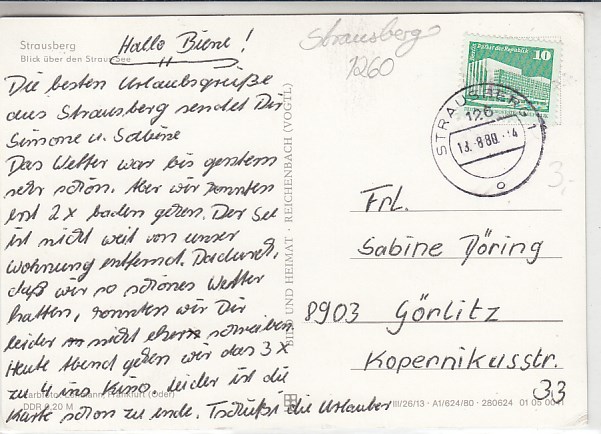 Strausberg
Blick über den Straussee
Hallo Biene!
Die besten Urlaubsgrüße
aus Strausberg sendet Dir
Simone u. Sabine
Das Wetter war bis gestern
sehr schön. Aber wir konnten
erst 2x baden gehen. Der See
ist nicht weit von unser
Wohnung entfernt. Dadurch,
daß wir so schönes Wetter
hatten, konnten wir Dir
leider nicht eher schreiben
Heute Abend gehen wir das 3x
zu 4 ins Kino. Leider ist die
Karte schon zu ende. Tschüßi die Urlauber
Frankfurt (Oder)
DDR 0,20 M
BILD UND HEIMAT · REICHENBACH (VOGTL)
Strausberg
1260
Berlin, Palast der Republik
10
STRAUSBERG 1
126
13.-8.80.--4
3,-
Frl.
Sabine Döring
8903 Görlitz
Kopernikusstr.
33
III/26/13 · A1/624/80 · 280624 01 05 0041